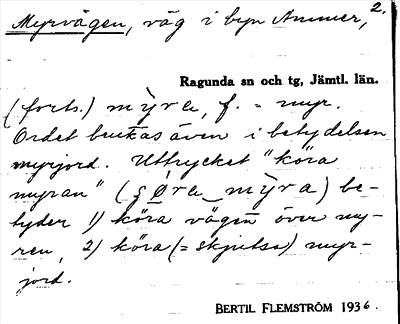 Myrvägen, väg i byn Ammer, 2.
Ragunda sn och tg, Jämtl. län.
(forts.) mỳra, f. = myr.
Ordet brukas även i betydelsen
myrjord. Uttrycket "köra
myran" (çøra mỳra) be-
tyder 1) köra vägen över my-
ren, 2) köra (= skjutsa) myr-
jord.
BERTIL FLEMSTRÖM 1936.